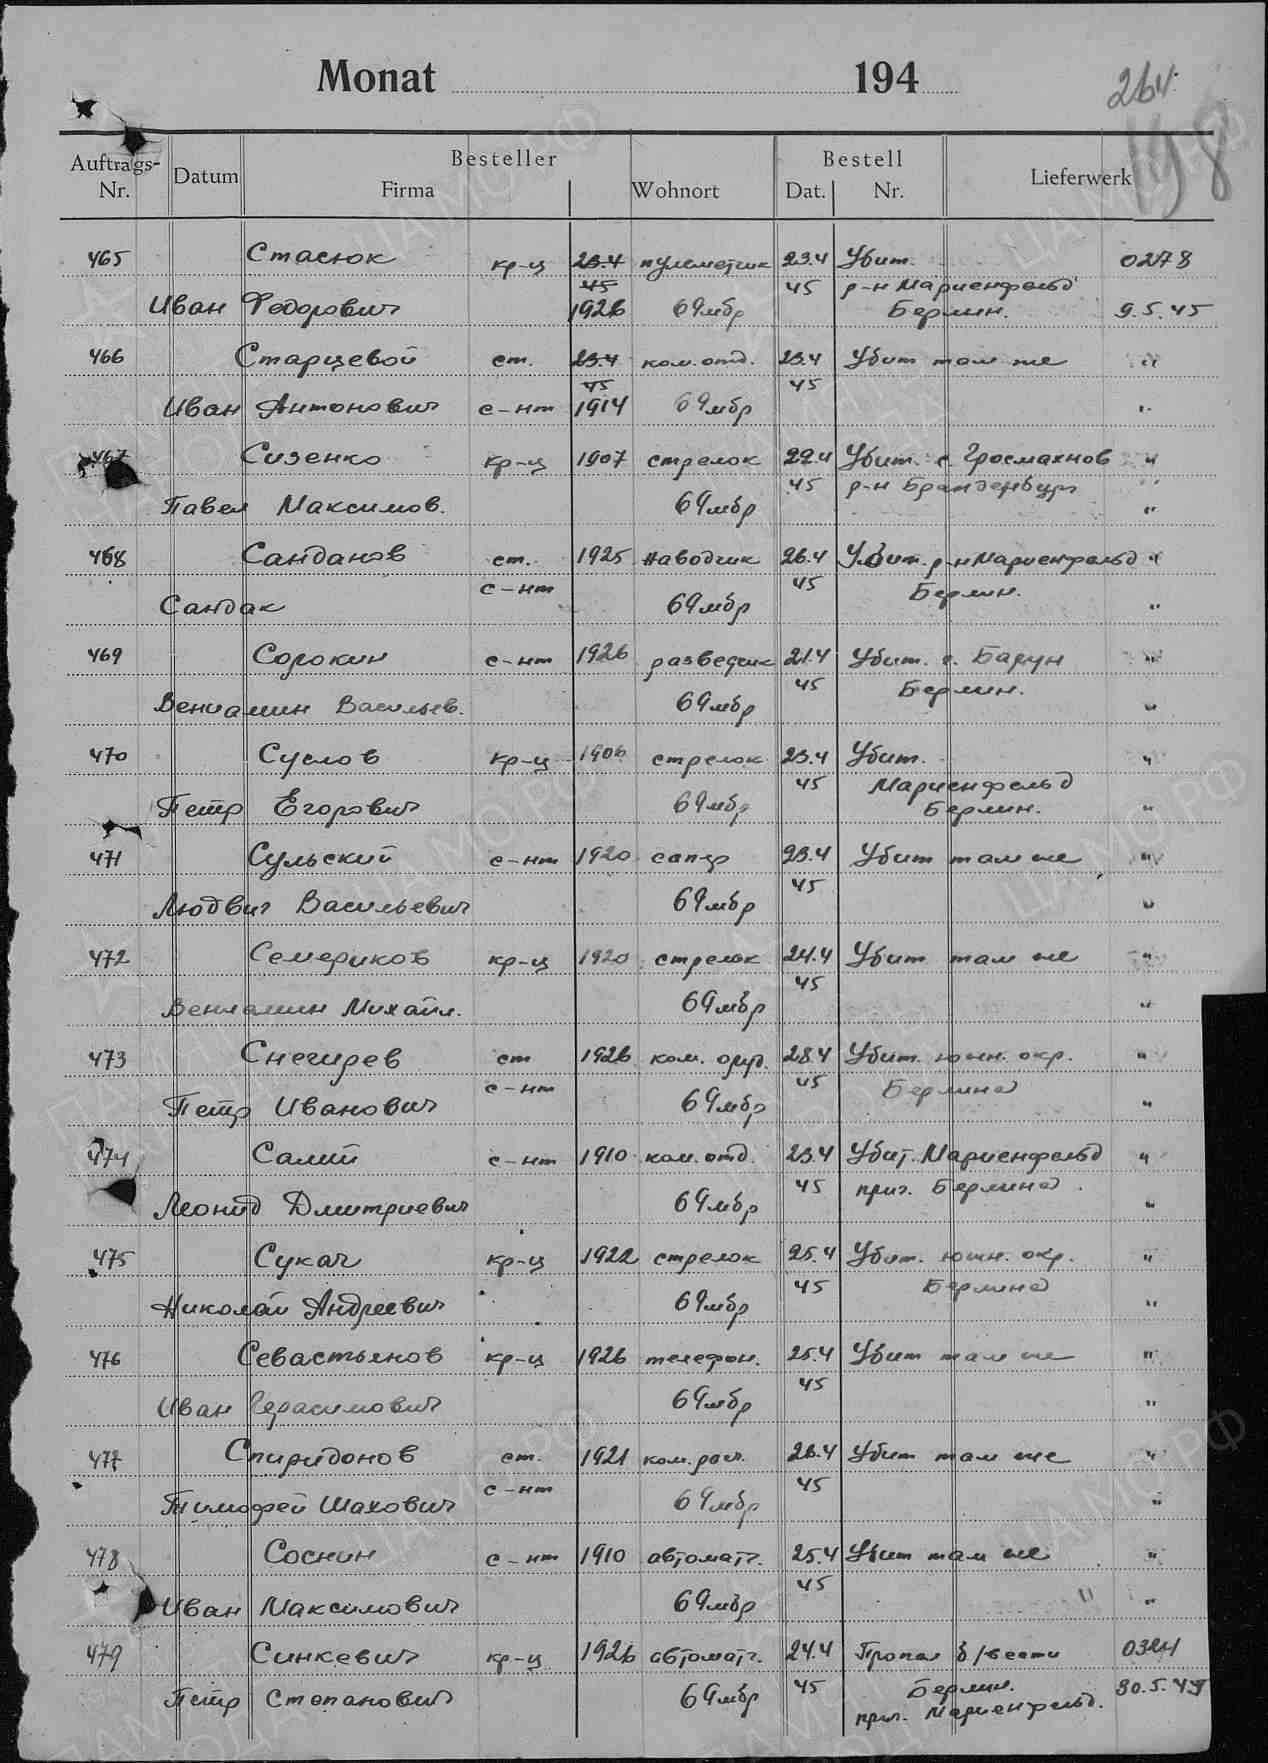 Monat 194
264
198
Auftrags-Nr. Datum Besteller Firma Wohnort Bestell Dat. Nr. Lieferwerk
465 Стасюк кр-ц 23.4 пулеметчик 23.4 Убит. 0278
45 45 р-н Мариенфельд
Иван Федорович 1926 69мбр Берлин. 9.5.45
466 Старцевой ст. 23.4 ком.отд. 23.4 Убит там же "
45 45
Иван Антонович с-нт 1914 69мбр "
467 Сизенко кр-ц 1907 стрелок 22.4 Убит. с. Гросмахнов "
45 р-н Бранденбург "
Павел Максимов. 69мбр "
468 Санданов ст. 1925 наводчик 26.4 Убит. р-н Мариенфельд "
с-нт 45 Берлин.
Сандак 69мбр "
469 Сорокин с-нт 1926 разведчик 21.4 Убит. г. Барун "
45 Берлин.
Вениамин Васильев. 69мбр "
470 Суслов кр-ц 1906 стрелок 23.4 Убит. "
45 Мариенфельд
Петр Егорович 69мбр Берлин. "
471 Сульский с-нт 1920 сапер 23.4 Убит там же "
45
Людвиг Васильевич 69мбр "
472 Семериков кр-ц 1920 стрелок 24.4 Убит там же "
45
Вениамин Михайл. 69мбр "
473 Снегирев ст 1926 ком. оруд. 28.4 Убит. южн. окр. "
с-нт 45 Берлина
Петр Иванович 69мбр "
474 Салий с-нт 1910 ком.отд. 23.4 Убит. Мариенфельд "
45 приг. Берлина.
Леонид Дмитриевич 69мбр "
475 Сукач кр-ц 1922 стрелок 25.4 Убит. южн. окр. "
45 Берлина
Николай Андреевич 69мбр "
476 Севастьянов кр-ц 1926 телефон. 25.4 Убит там же "
45
Иван Герасимович 69мбр "
477 Спиридонов ст. 1921 ком.расч. 26.4 Убит там же "
с-нт 45
Тимофей Шахович 69мбр "
478 Соснин с-нт 1910 автомат. 25.4 Убит там же "
45
Иван Максимович 69мбр " "
479 Синкевич кр-ц 1926 автомат. 24.4 Пропал б/вести
45 Берлин. 30.5.45
Петр Степанович 69мбр приг. Мариенфельд.